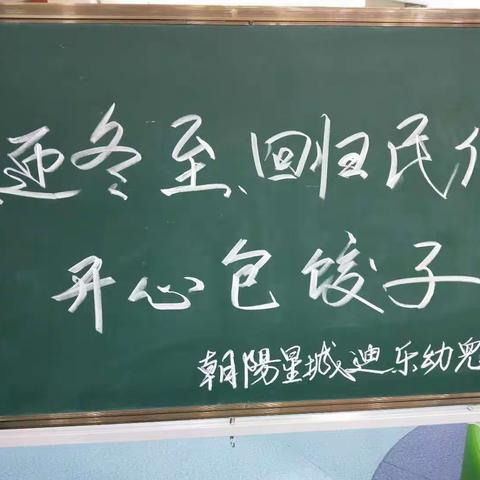 迎冬至、回归民
开心包饺子
朝陽星城迪乐幼兒